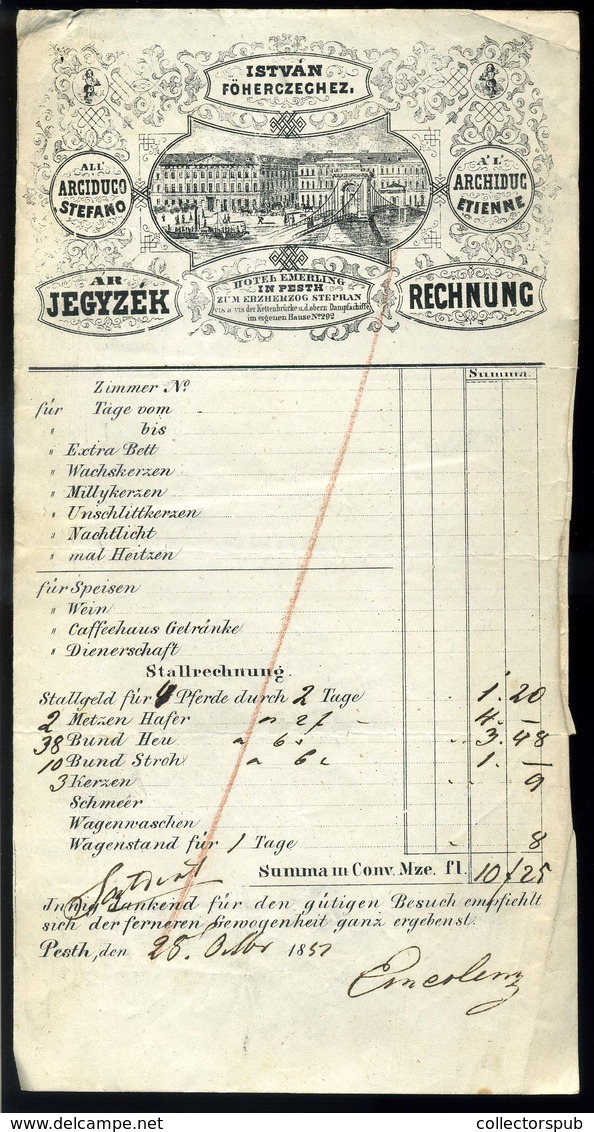 ISTVÁN
FŐHERCZEGHEZ.
ALL'
ARCIDUCO
STEFANO
A' L'
ARCHIDUC
ETIENNE
ÁR
JEGYZÉK
HOTEL EMERLING
IN PESTH
ZUM ERZHERZOG STEPHAN
vis a vis der Kettenbrücke u. d. obern Dampfschiffe
im eigenen Hause No. 292
RECHNUNG
Summa
Zimmer No.
für Täge vom
bis
" Extra Bett
" Wachskerzen
" Millykerzen
" Unschlittkerzen
" Nachtlicht
" mal Heitzen
für Speisen
" Wein
" Caffeehaus Getränke
" Dienerschaft
Stallrechnung.
Stallgeld für 4 Pferde durch 2 Tage 1. 20
2 Metzen Hafer a 2f 4. –
38 Bund Heu a 6x 3. 48
10 Bund Stroh a 6x 1. –
3 Kerzen 9
Schmeer
Wagenwaschen
Wagenstand für 1 Tage 8
Summa in Conv. Mze. fl. 10f 25
dankend für den gütigen Besuch empfiehlt
sich der ferneren Gewogenheit ganz ergebenst.
Pesth, den 28. Octbr 1851
Emerling
collectorspub
delcampe.net